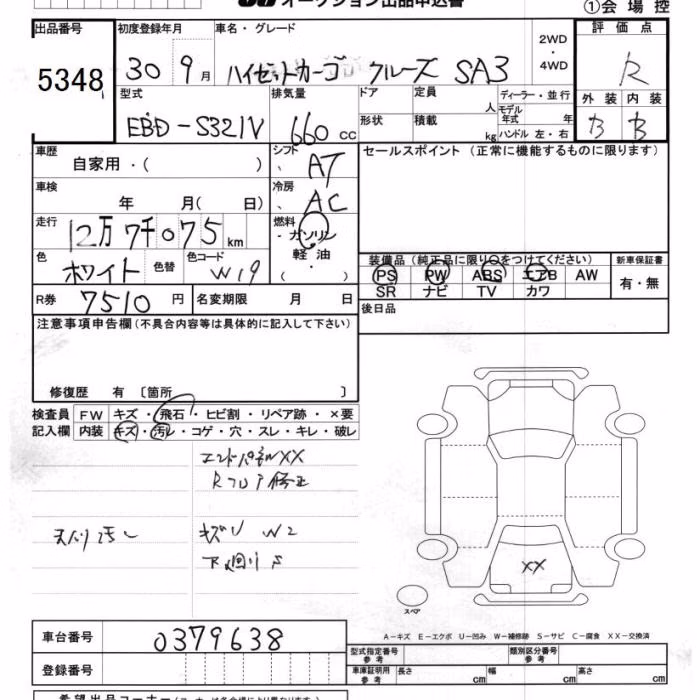 オークション出品申込書 ①会場控
出品番号 初度登録年月 車名・グレード 2WD 評価点
5348 30 9月 ハイゼットカーゴ クルーズ SA3 ・4WD R
型式 排気量 ドア 定員 ディーラー・並行 外装 内装
EBD-S321V 660cc 人 モデル年式 年 B B
形状 積載 kg ハンドル 左・右
車歴 シフト セールスポイント (正常に機能するものに限ります)
自家用・( ) AT
車検 冷房
年 月( 日) AC
走行 燃料
12万7千075km ・ガソリン
色 色替 色コード 軽油 装備品(純正品に限り○をつけてください) 新車保証書
ホワイト W19 ・( ) PS PW ABS エアB AW 有・無
R券 7510円 名変期限 月 日 SR ナビ TV カワ
注意事項申告欄(不具合内容等は具体的に記入して下さい) 後日品
修復歴 有 〔箇所 〕
検査員 FW キズ・飛石・ヒビ割・リペア跡・×要
記入欄 内装 キズ・汚レ・コゲ・穴・スレ・キレ・破レ
エンドパネルXX
Rフロア修正
天バリ汚レ キズU W2
下廻りS
XX
スペア
A-キズ E-エクボ U-凹み W-補修跡 S-サビ C-腐食 XX-交換済
車台番号 0379638 型式指定番号 参考 類別区分番号 参考
登録番号 車庫証明用 参考 長さ cm 幅 cm 高さ cm